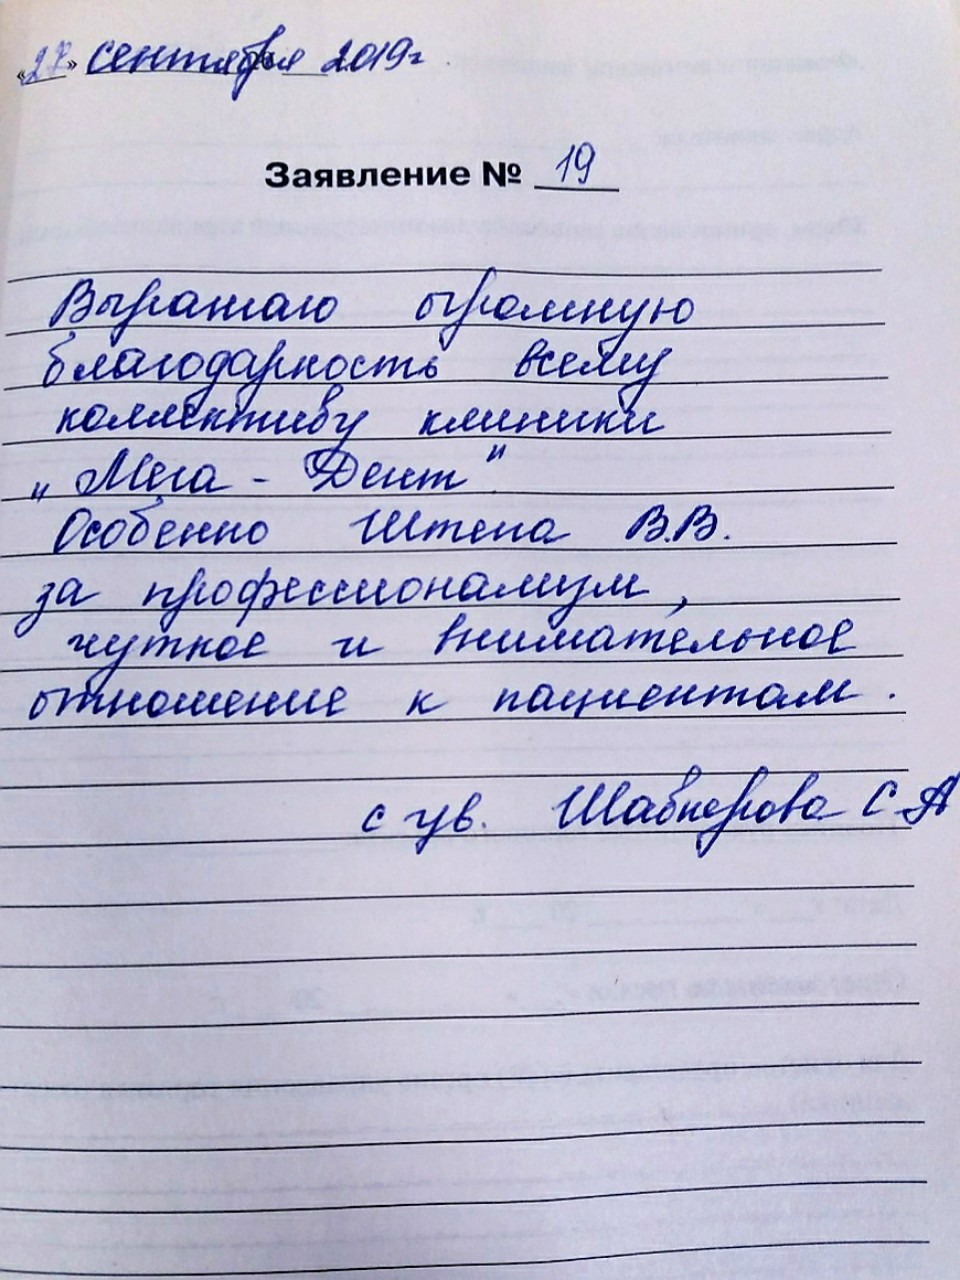 «27» сентября 2019г
Заявление № 19
Выражаю огромную
благодарность всему
коллективу клиники
„Мега - Дент"
Особенно Штепа В.В.
за профессионализм,
чуткое и внимательное
отношение к пациентам.
с ув. С.А